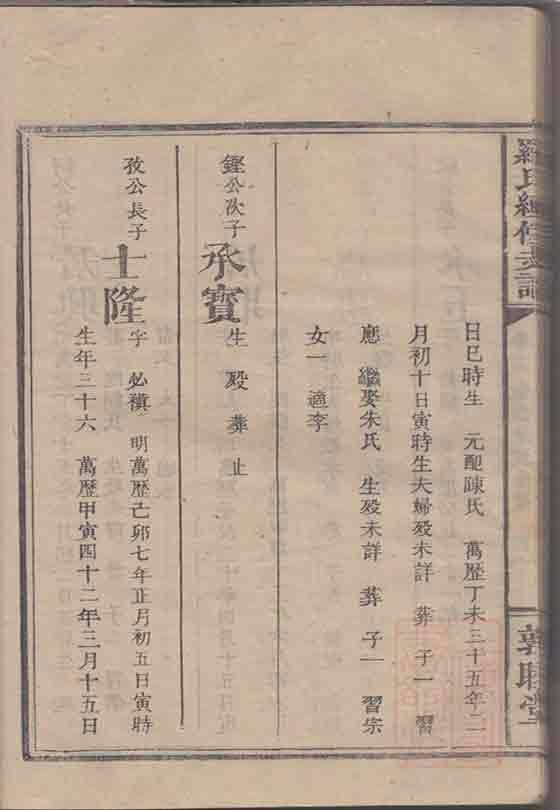 羅氏續修支譜
敦睦堂
日巳時生 元配陳氏 萬歷丁未三十五年二
月初十日寅時生夫婦歿未詳 葬 子一 習
應 繼娶朱氏 生歿未詳 葬 子一 習宗
女一 適李
鏗公次子 承寳 生 歿 葬 止
孜公長子 士隆 字 必禛 明萬歷己卯七年正月初五日寅時
生年三十六 萬歷甲寅四十二年三月十五日